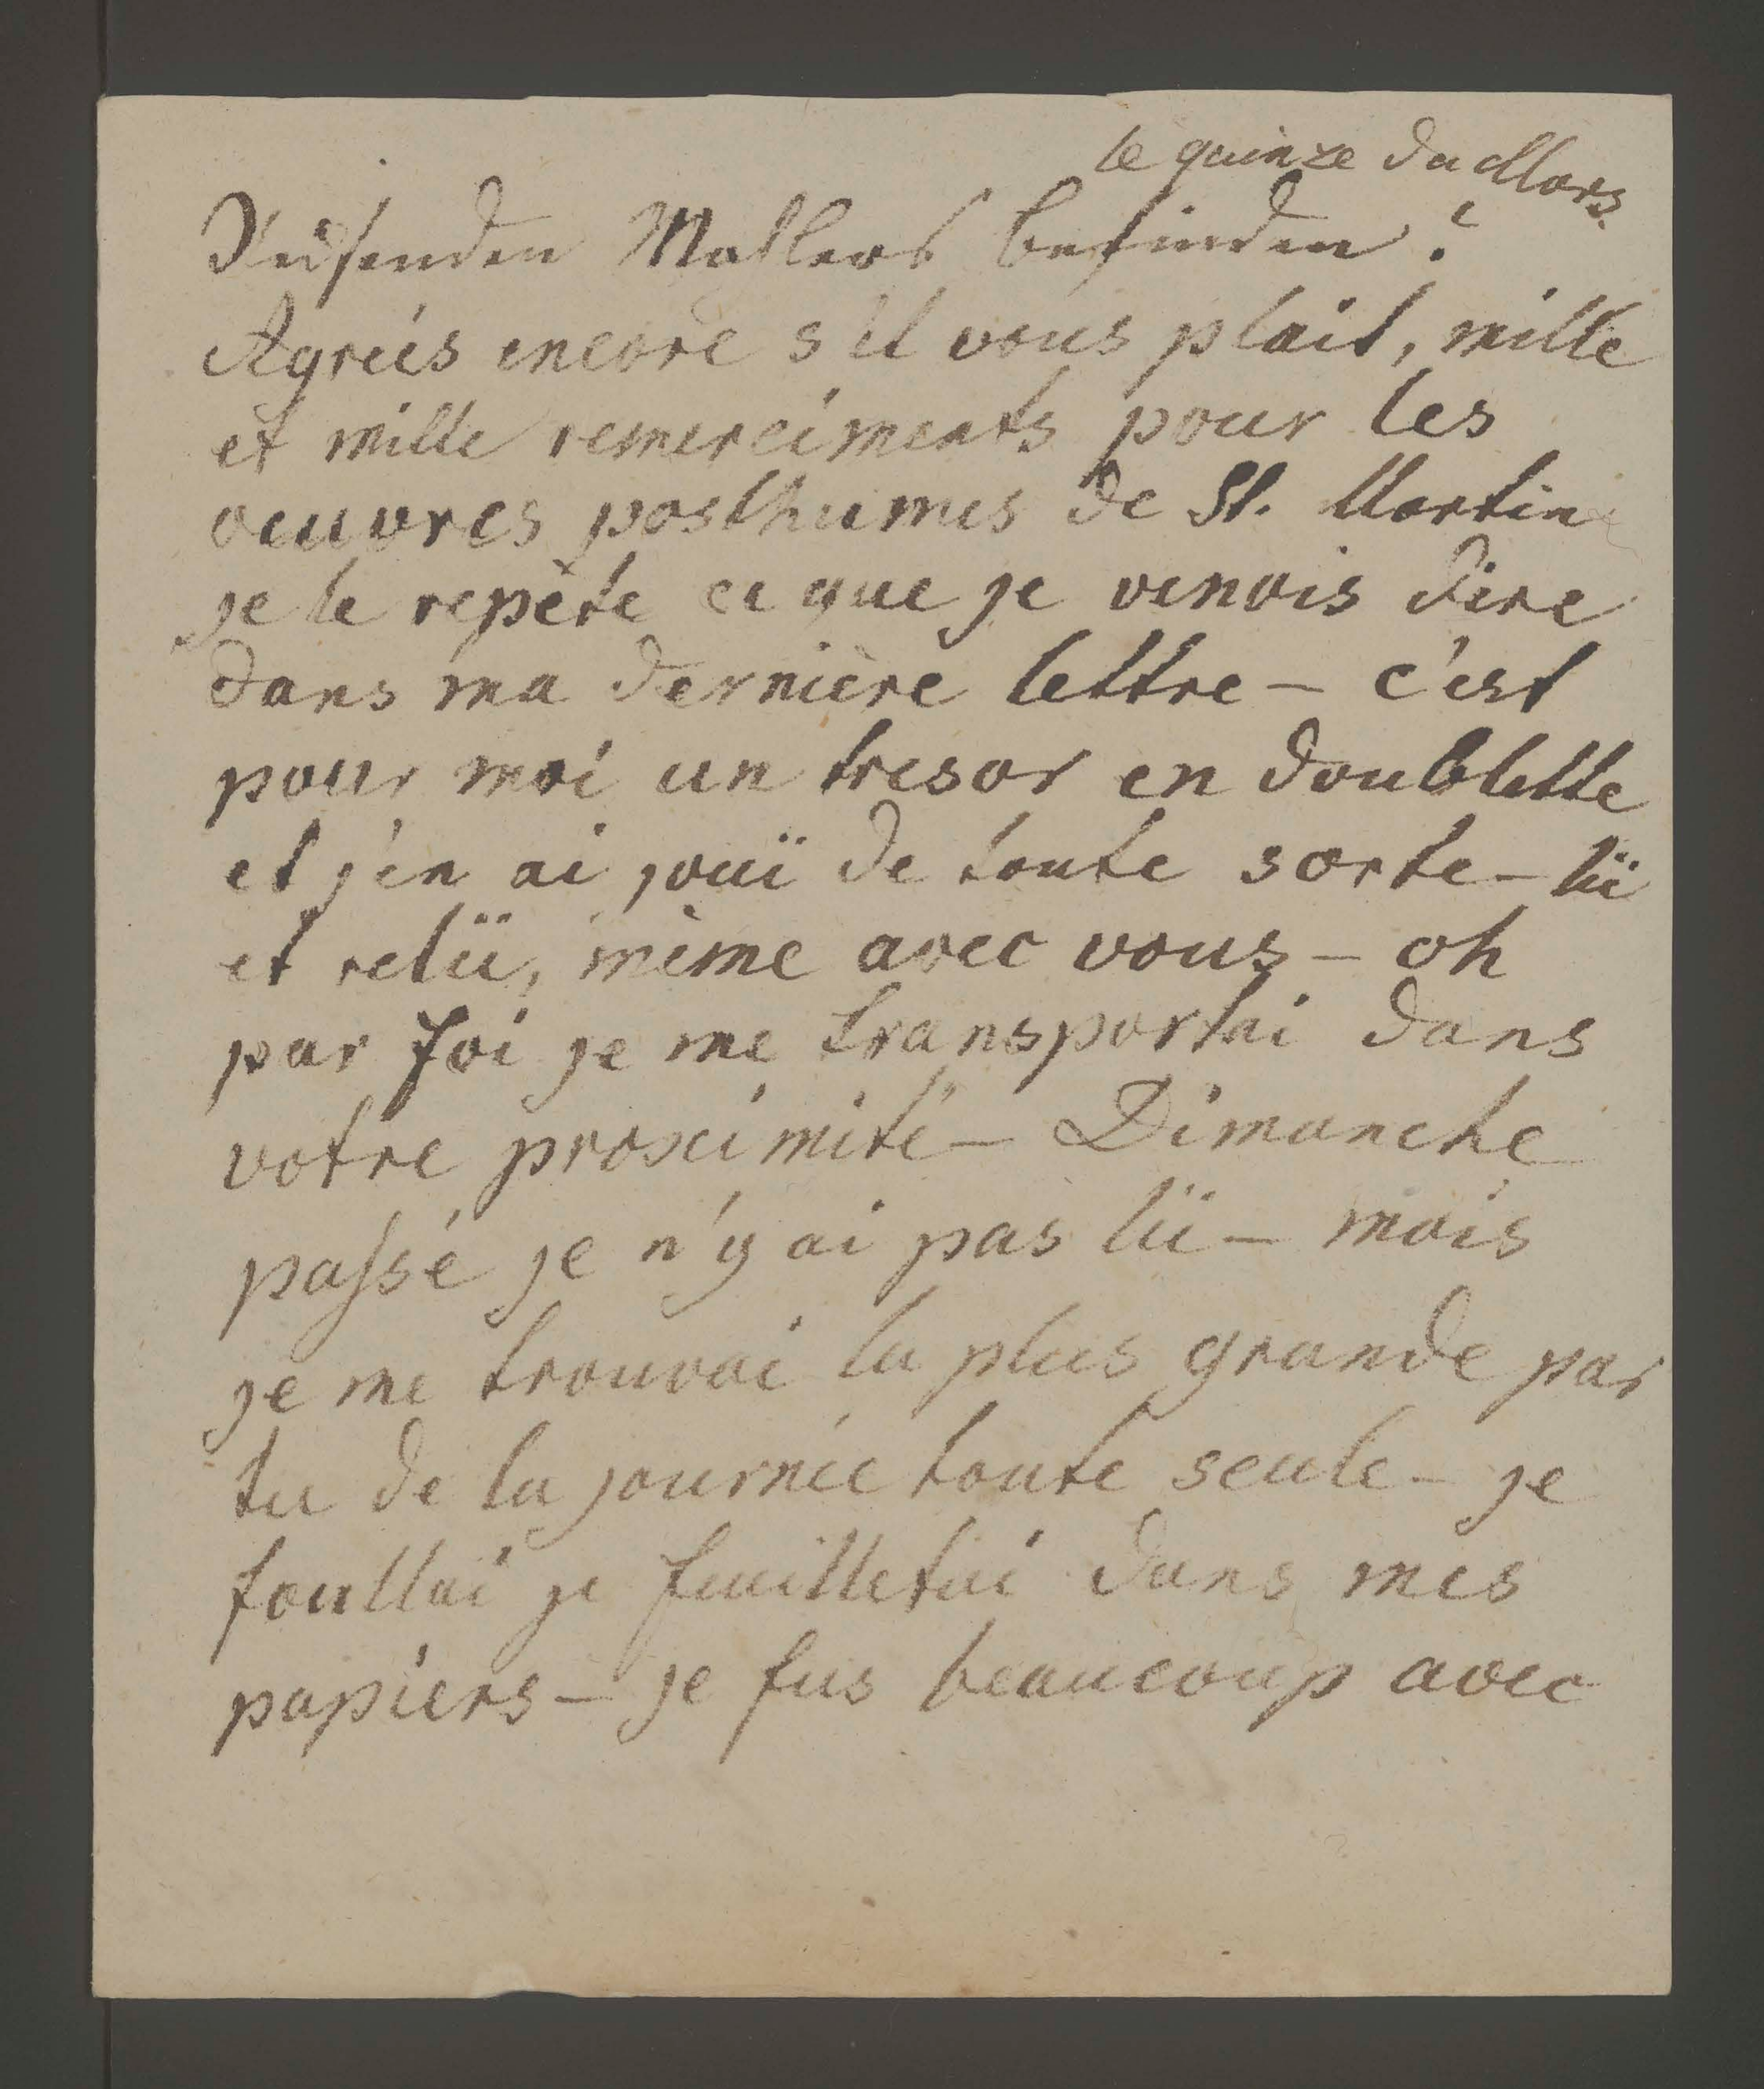 le quinze du Mars.
Mahlers befinden?
Agréés encore s'il vous plait, mille
et mille remerciments pour les
oeuvres posthumes de St. Martin
je le repète ce que je venois dire
dans ma dernière lettre – c'est
pour moi un tresor en doublette
et j'en ai jouï de toute sorte – lü
et relü, même avec vous – oh
par foi je me transportai dans
votre proximité – Dimanche
passé je n'y ai pas lü – mais
je me trouvai la plus grande par
tie de la journée toute seule – je
foullai je feuilletai dans mes
papiers – je fus beaucoup avec